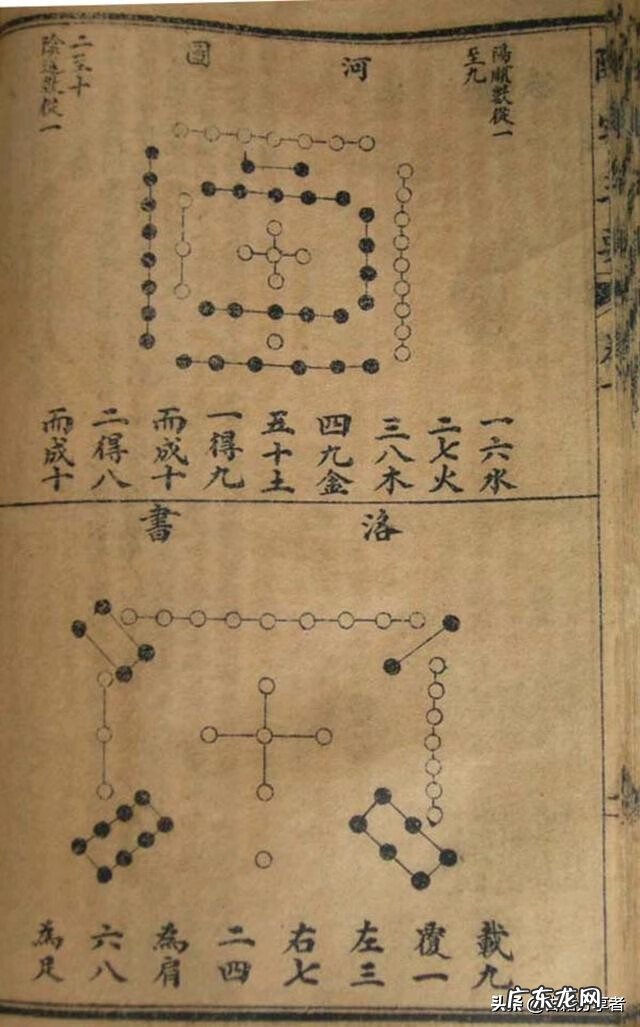 陽順數從一
至九
河圖
二至十
陰逆數從一
一六水
二七火
三八木
四九金
五十土
一得九
而成十
二得八
而成十
洛書
載九
覆一
左三
右七
二四
為肩
六八
為足
广东龙网
头条
分享者